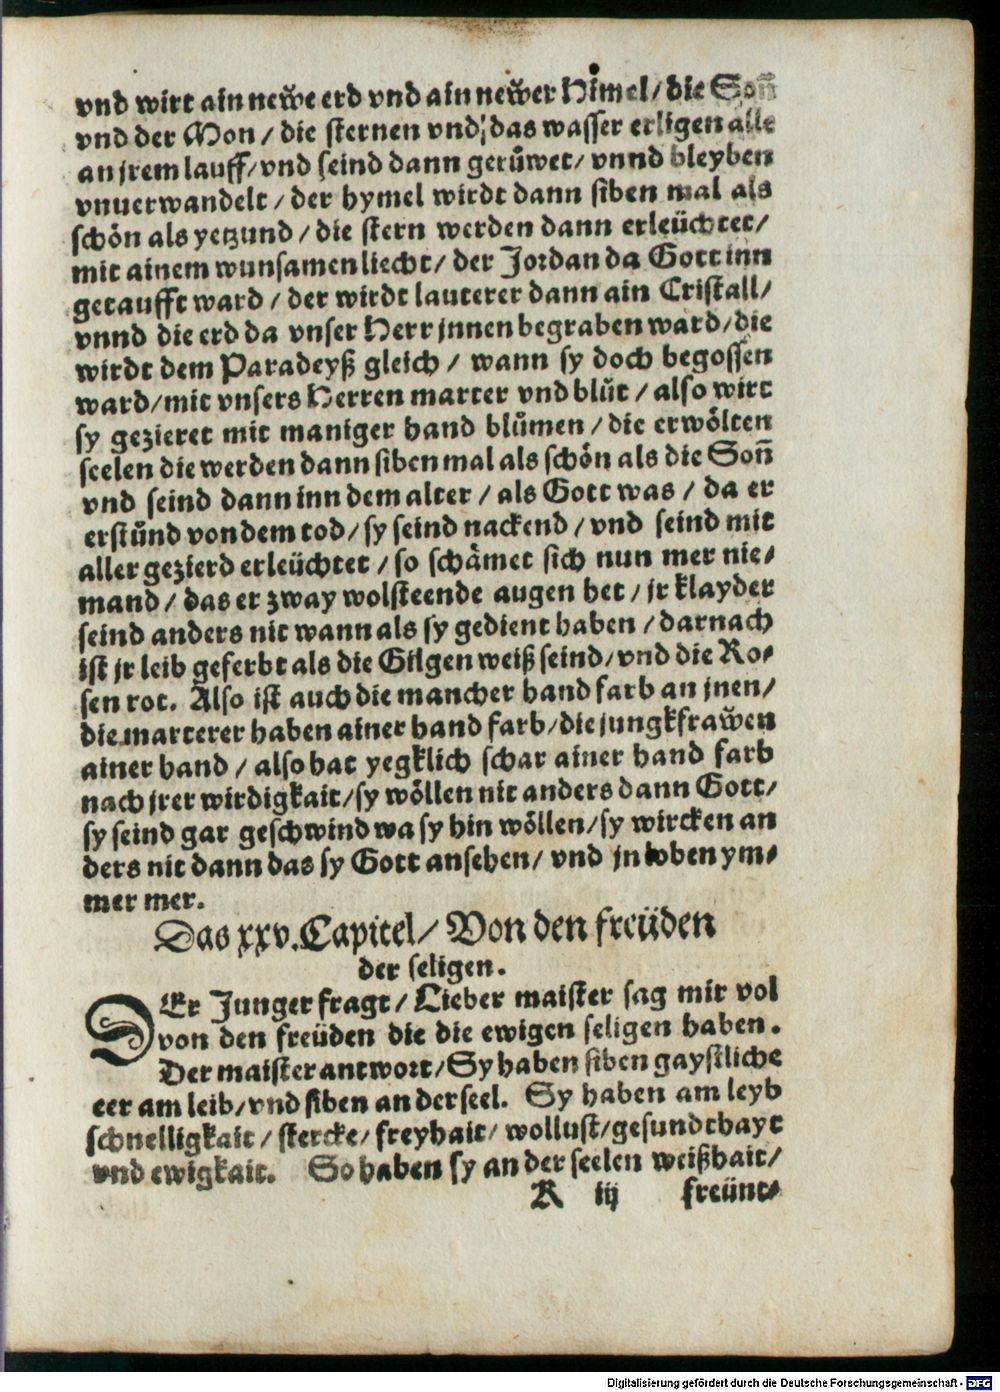 vnd wirt ain neẅe erd vnd ain neẅer Himel / die Son̄
vnd der Mon / die sternen vnd das wasser erligen alle
an jrem lauff / vnd seind dann gerůwet / vnnd bleyben
vnuerwandelt / der hymel wirdt dann siben mal als
schön als yetzund / die stern werden dann erleüchtet /
mit ainem wunsamen liecht / der Jordan da Gott inn
getaufft ward / der wirdt lauterer dann ain Cristall /
vnnd die erd da vnser Herr jnnen begraben ward / die
wirdt dem Paradeyß gleich / wann sy doch begossen
ward / mit vnsers Herren marter vnd blůt / also wirt
sy gezieret mit maniger hand blůmen / die erwölten
seelen die werden dann siben mal als schön als die Son̄
vnd seind dann inn dem alter / als Gott was / da er
erstůnd von dem tod / sy seind nackend / vnd seind mit
aller gezierd erleüchtet / so schämet sich nun mer nie-
mand / das er zway wolsteende augen het / jr klayder
seind anders nit wann als sy gedient haben / darnach
ist jr leib geferbt als die Gilgen weiß seind / vnd die Ro-
sen rot. Also ist auch die mancher hand farb an jnen /
die marterer haben ainer hand farb / die jungkfraẅen
ainer hand / also hat yegklich schar ainer hand farb
nach jrer wirdigkait / sy wöllen nit anders dann Gott /
sy seind gar geschwind wa sy hin wöllen / sy wircken an
ders nit dann das sy Gott ansehen / vnd jn loben ym-
mer mer.
Das xxv. Capitel / Von den freüden
der seligen.
DEr Junger fragt / Lieber maister sag mir vol
von den freüden die die ewigen seligen haben.
Der maister antwort / Sy haben siben gaystliche
eer am leib / vnd siben an der seel. Sy haben am leyb
schnelligkait / stercke / freyhait / wollust / gesundthayt
vnd ewigkait. So haben sy an der seelen weißhait /
K iij freünt-
Digitalisierung gefördert durch die Deutsche Forschungsgemeinschaft - DFG